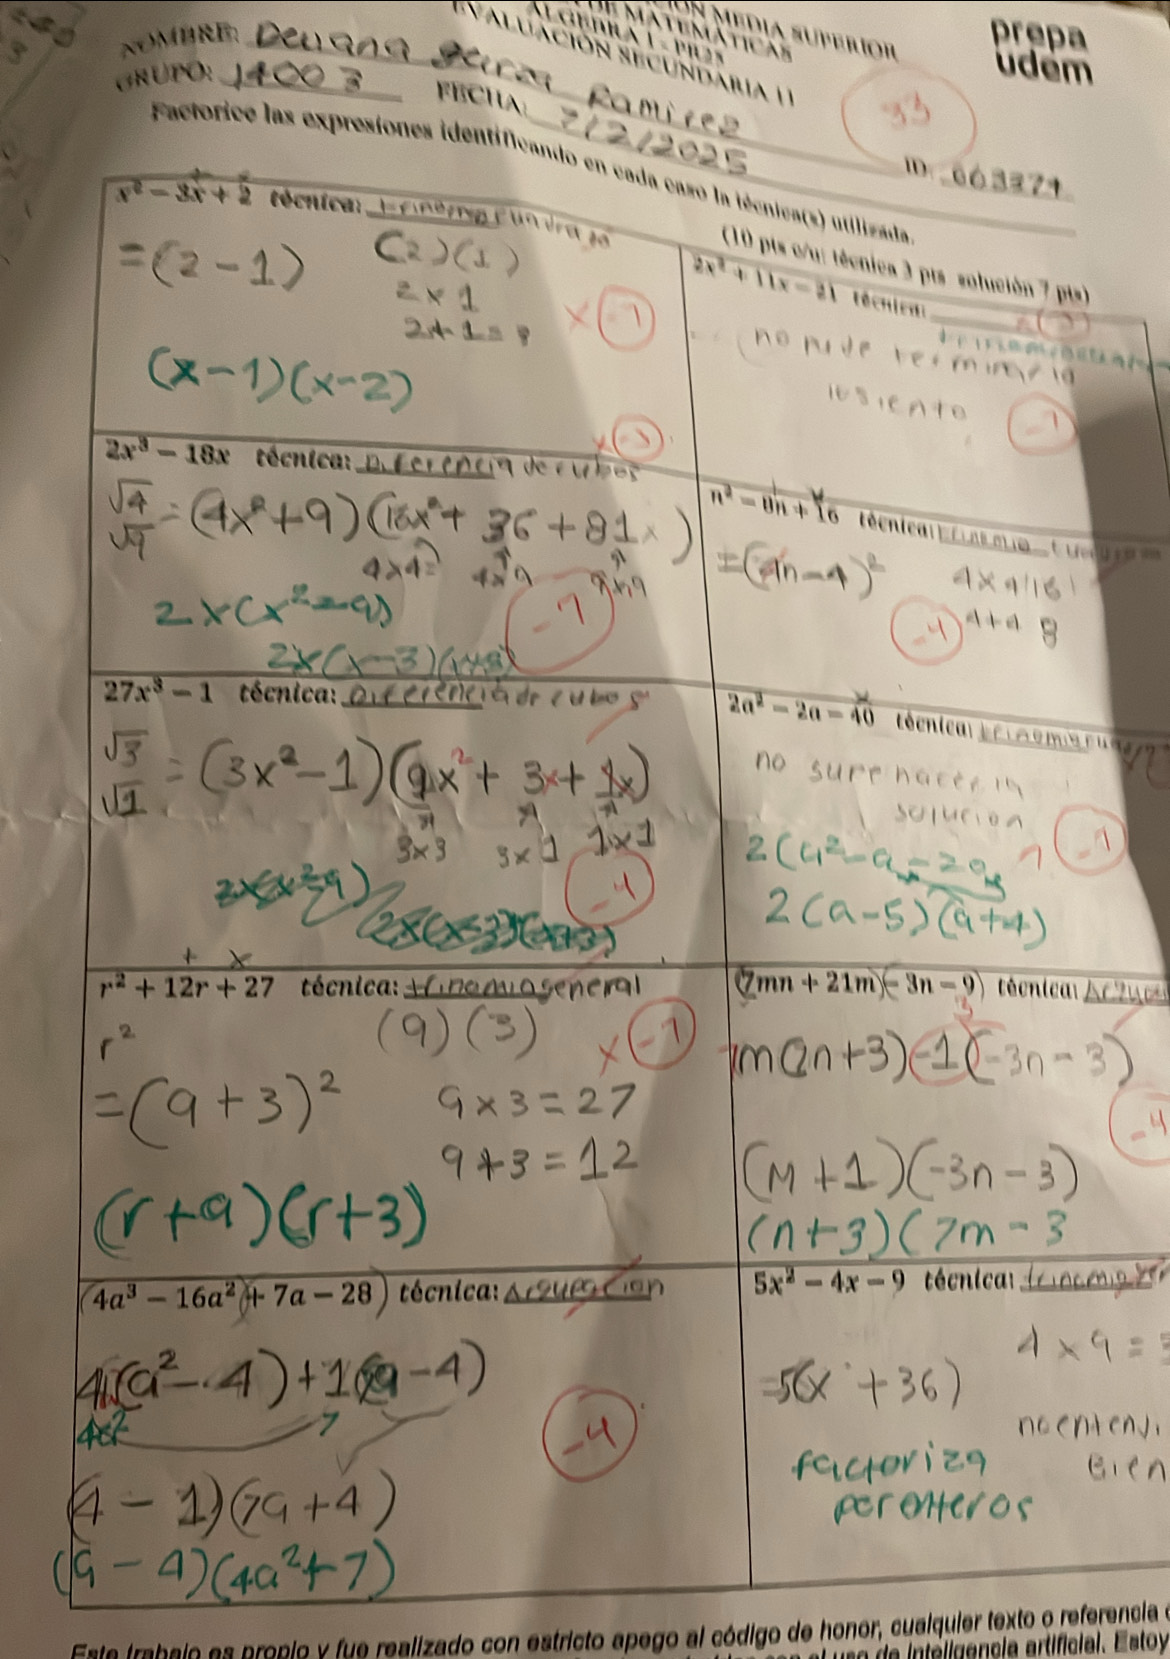 prepa
udem
ÁLGEBRA I - PR25
EVALUACIÓN SECUNDARIA 11
NOMBRE: Devana garza Ramirez
GRUPO: 14003 FECHA: 7/2/2025 ID: 663374
33
Factorice las expresiones identificando en cada caso la técnica(s) utilizada.
(10 pts c/u: técnica 3 pts solución 7 pts)
x² - 3x + 2 técnica:
= (2 - 1) (2)(1)
2 x 1
2+1=3
x -7
(x-1)(x-2)
2x² + 11x - 21 técnica:
no pude terminarla
losiento
-7
2x³ - 18x técnica: Diferencia de cubos
x -3
√4
√9 = (4x²+9)(16x²+ 36 + 81x)
4x4= 4x9 9x9
-7
2x(x²-9)
2x(x-3)(x+3)
n² - 8n + 16 técnica:
=(4n-4)² 4x4=16
4+4 8
-4
27x³ - 1 técnica: Diferencia de cubos
√3
√1 = (3x²-1)(9x² + 3x + 1x)
3x3 3x1 1x1
-4
2x(x²-9)
2x(x-3)(x+3)
2a² - 2a - 40 técnica:
no supe hacer la
solucion
-7
2(a²-a-20)
2(a-5)(a+4)
+ x
r² + 12r + 27 técnica: trinomio general
r² (9)(3) x -7
=(9+3)² 9x3=27
9+3=12
(r+9)(r+3)
(7mn + 21m)(- 3n - 9) técnica:
7m(2n+3)-1(-3n-3)
-4
(m+1)(-3n-3)
(n+3)(7m-3
(4a³ - 16a²)(+ 7a - 28) técnica: Arquacion
4(a²-4)+1(7a-4)
4a² 7
-4
(4-1)(7a+4)
(a-4)(4a²+7)
5x² - 4x - 9 técnica:
4x9=
=5(x+36)
no entendi
Bien
factoriza
por enteros
Este trabajo es propio y fue realizado con estricto apego al código de honor, cualquier texto o referencia
de inteligencia artificial. Estoy